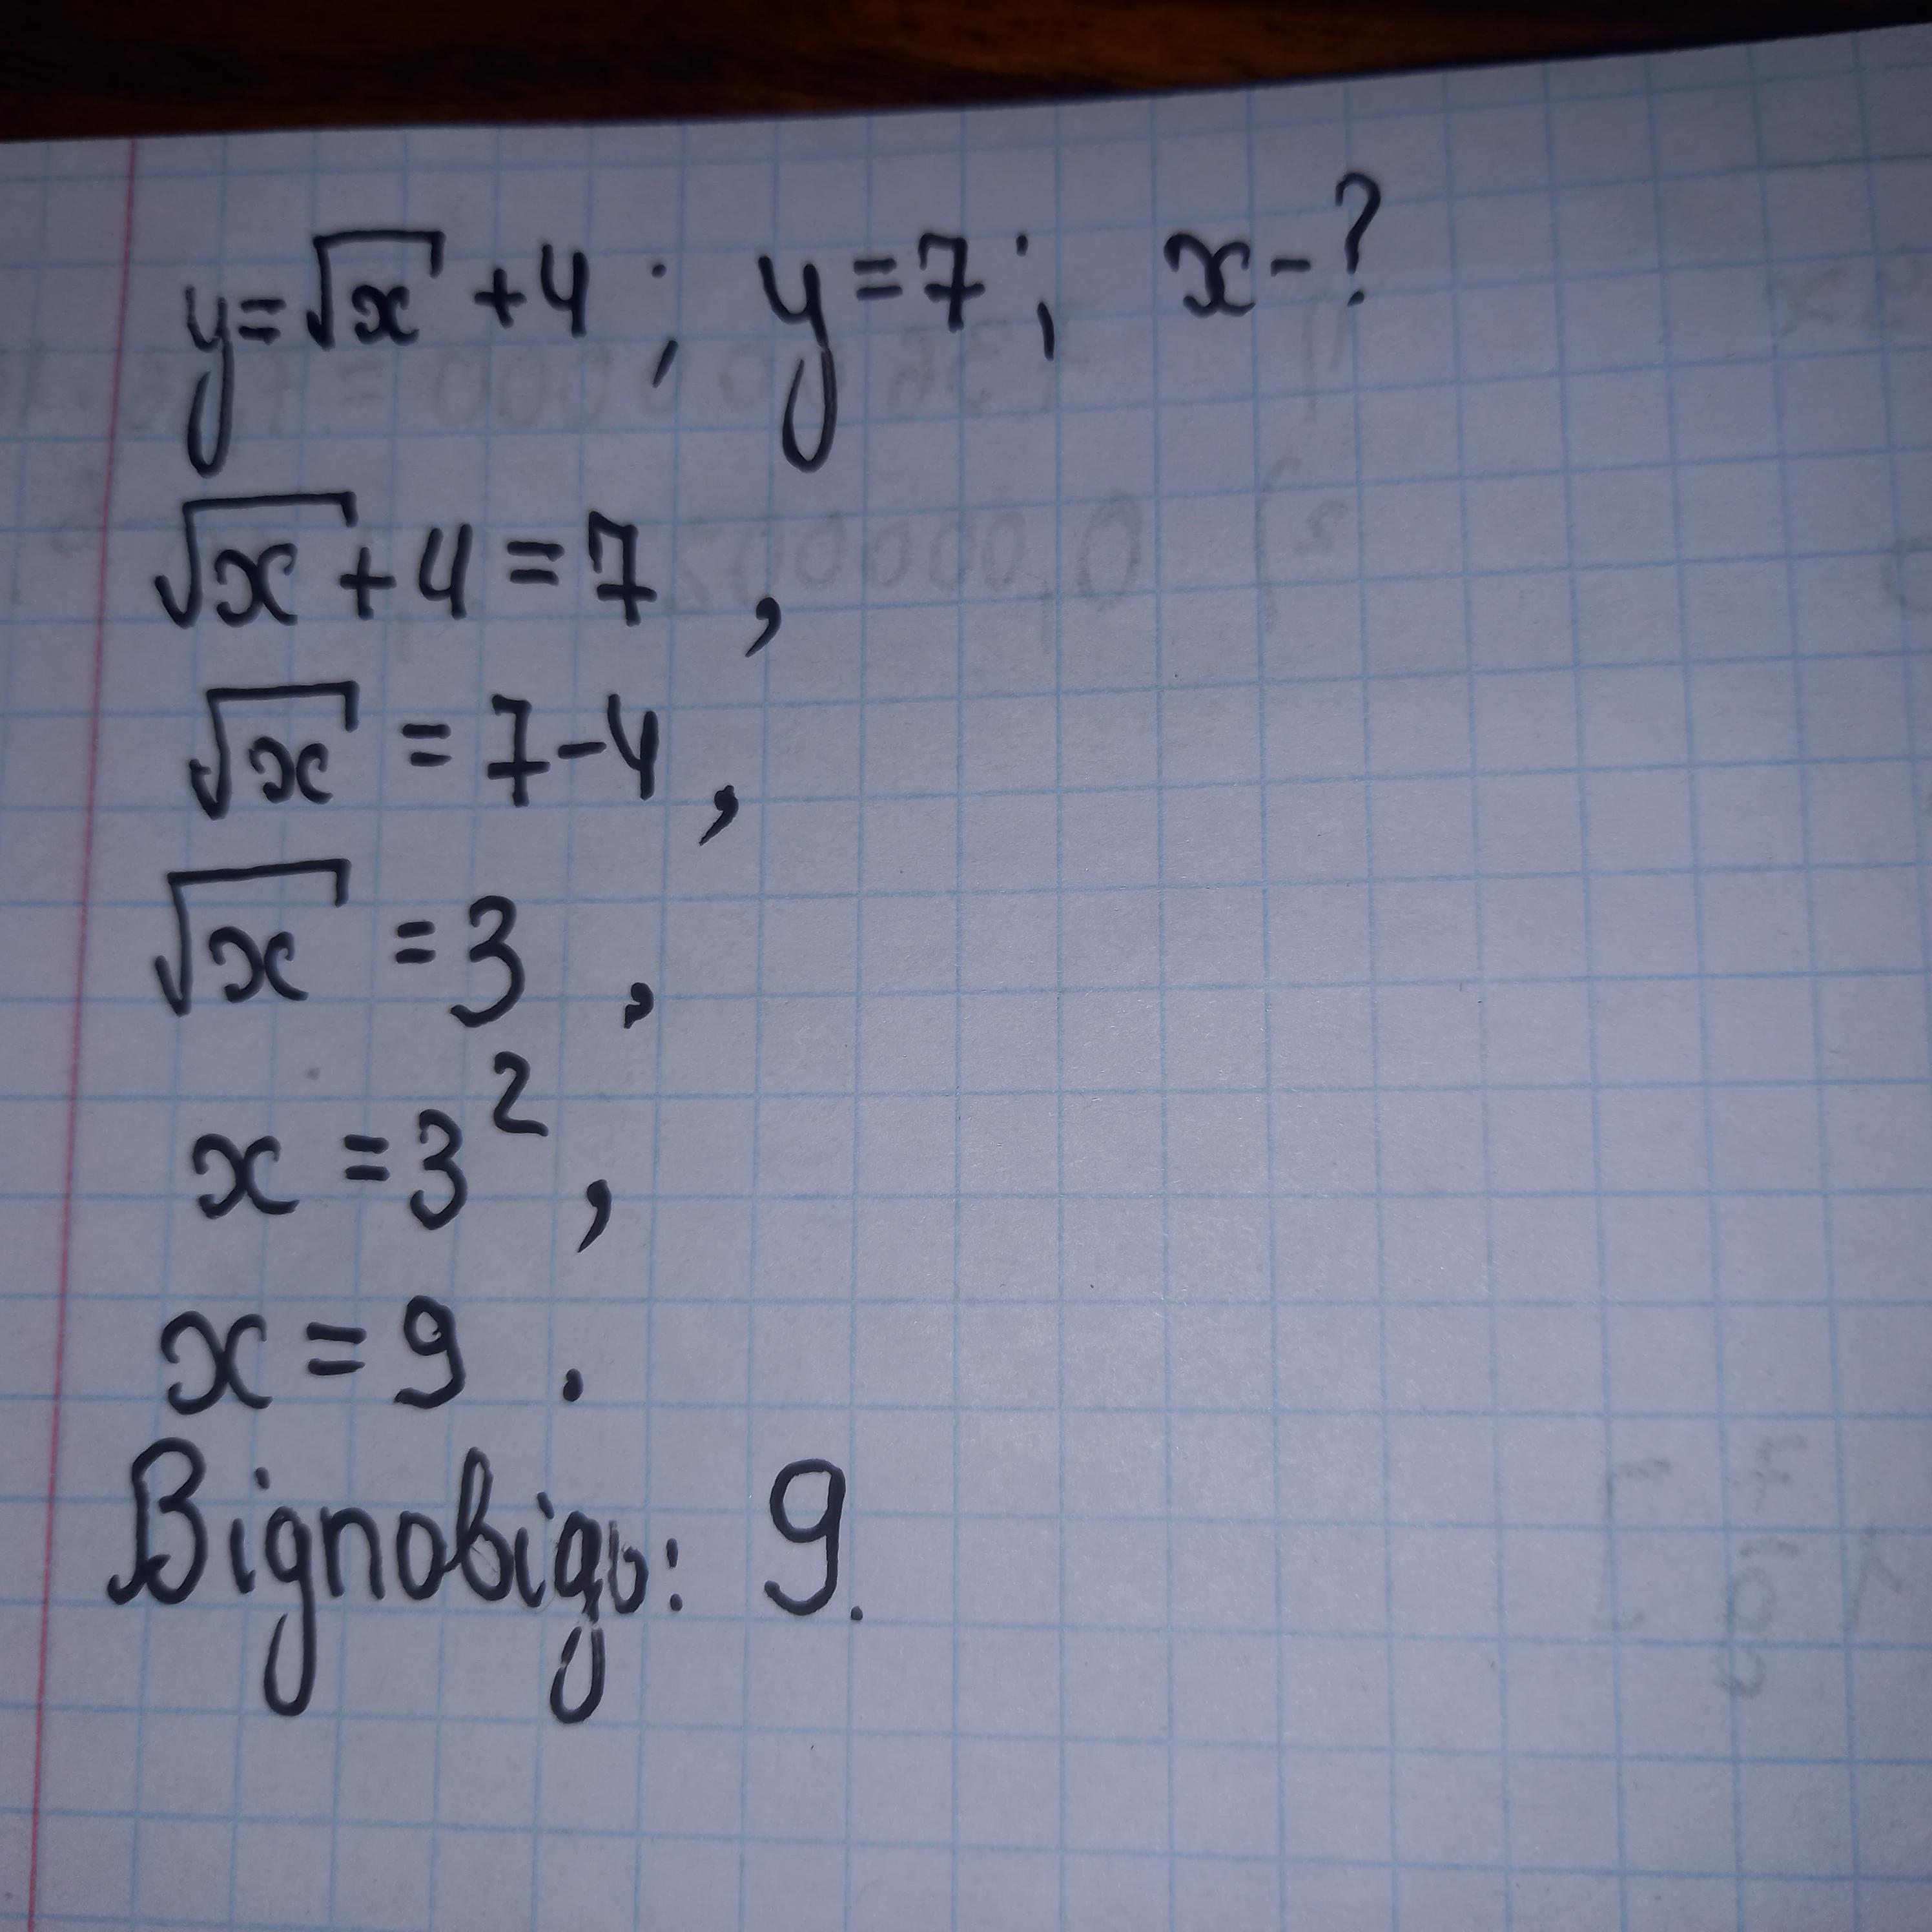 y=√x +4 ; y=7 ; x-?
√x+4=7 ,
√x = 7-4 ,
√x = 3 ,
x = 3² ,
x = 9 .
Відповідь: 9.